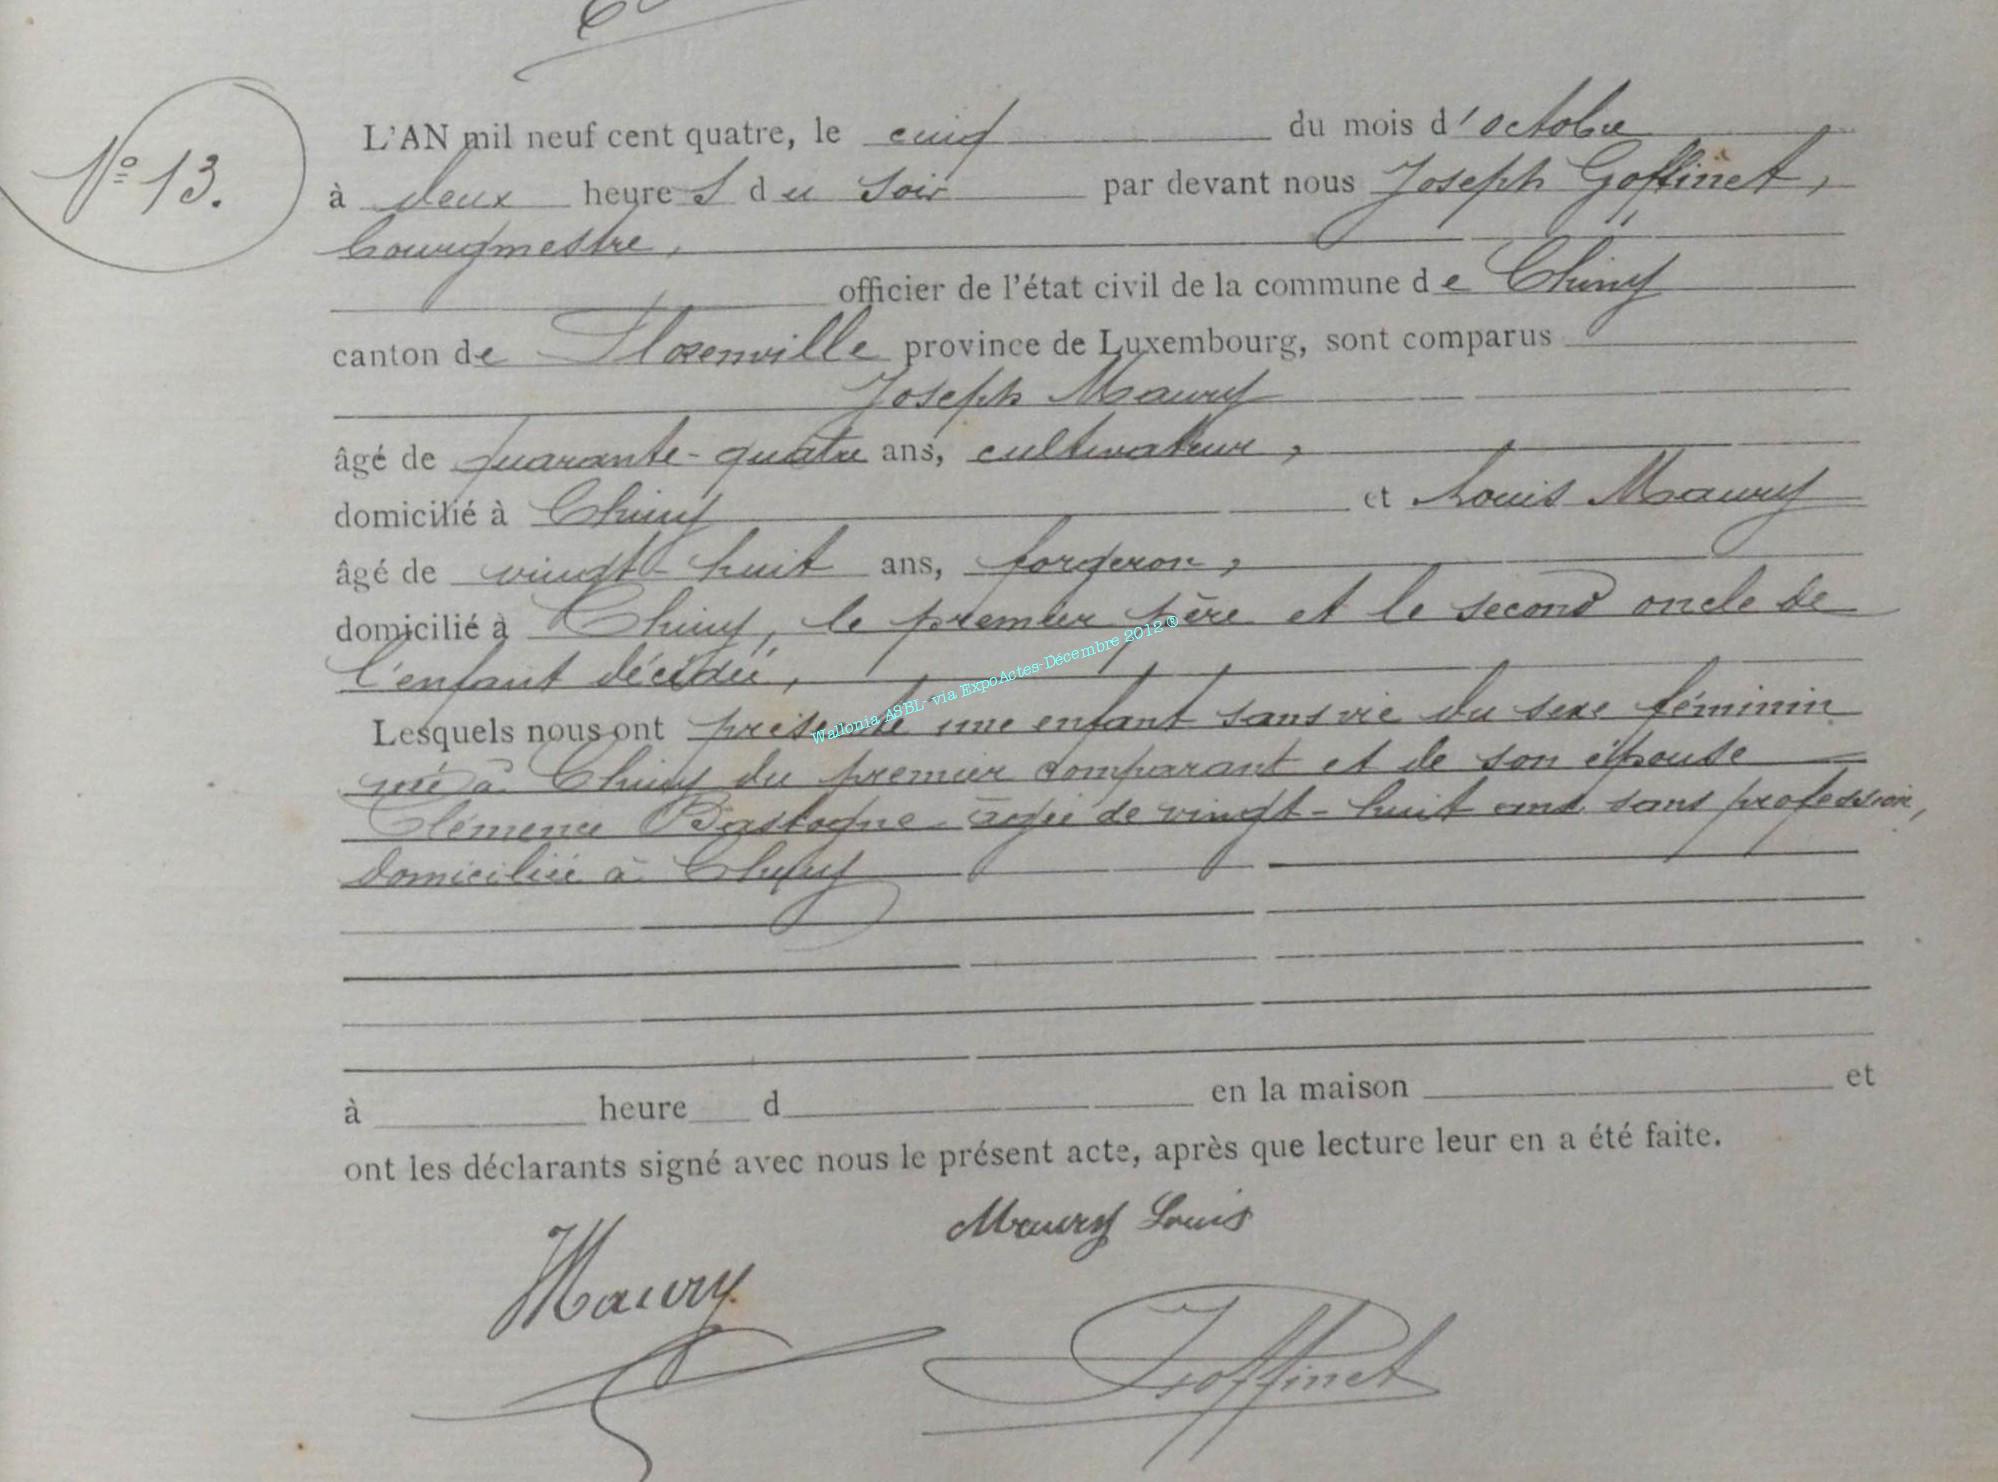 N° 13.
L'AN mil neuf cent quatre, le cinq du mois d'octobre
à deux heures du soir par devant nous Joseph Goffinet,
bourgmestre,
officier de l'état civil de la commune de Chiny
canton de Florenville province de Luxembourg, sont comparus
Joseph Maury
âgé de quarante-quatre ans, cultivateur,
domicilié à Chiny et Louis Maury
âgé de vingt-huit ans, forgeron,
domicilié à Chiny, le premier père et le second oncle de
l'enfant décédé,
Lesquels nous ont présenté une enfant sans vie du sexe féminin
né à Chiny du premier comparant et de son épouse
Clémence Bastogne âgée de vingt-huit ans sans profession,
domiciliée à Chiny
à heure d en la maison et
ont les déclarants signé avec nous le présent acte, après que lecture leur en a été faite.
Maury Louis
Maury
Goffinet
Wallonia ASBL- via ExpoActes-Décembre 2012 ®